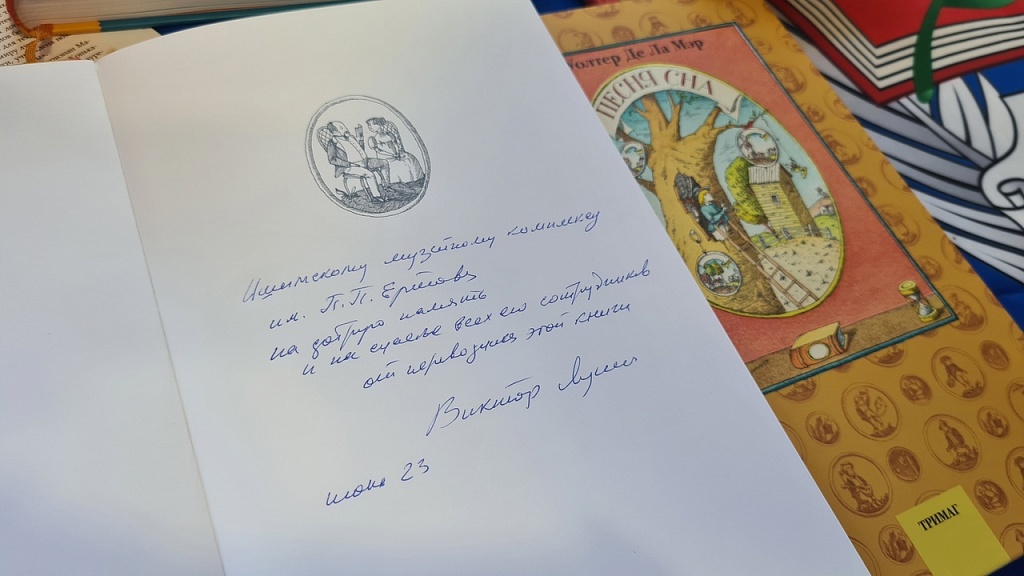 Ишимскому музейному комплексу
им. П.П. Ершова
на добрую память
и на счастье всех его сотрудников
от переводчика этой книги
Виктор Лунин
июнь 23
Уолтер Де Ла Мэр
ПЕСНЯ СНА
ТРИМАГ